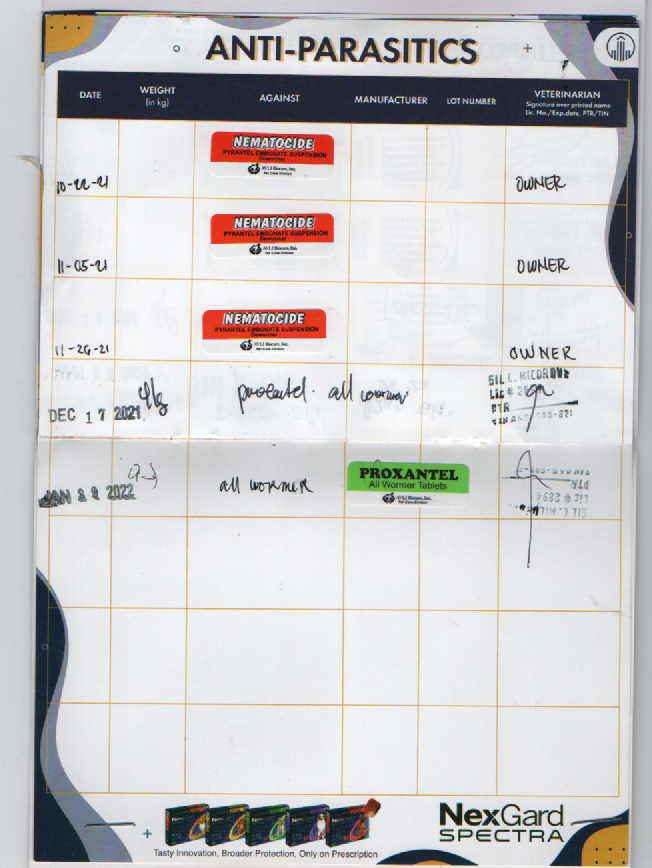 ANTI-PARASITICS
DATE
WEIGHT
(in kg)
AGAINST
MANUFACTURER
LOT NUMBER
VETERINARIAN
Signature over printed name
Lic. No./Exp.date, PTR/TIN
10-22-21
NEMATOCIDE
PYRANTEL EMBONATE SUSPENSION
Dewormer
Pet Care Division
OWNER
11-05-21
NEMATOCIDE
PYRANTEL EMBONATE SUSPENSION
Dewormer
Pet Care Division
OWNER
11-26-21
NEMATOCIDE
PYRANTEL EMBONATE SUSPENSION
Pet Care Division
OWNER
DEC 17 2021
all wormer
Lic #
PTR
2022
all wormer
PROXANTEL
All Wormer Tablets
Pet Care Division
PTR
Lic #
Tasty Innovation, Broader Protection, Only on Prescription
NexGard
SPECTRA